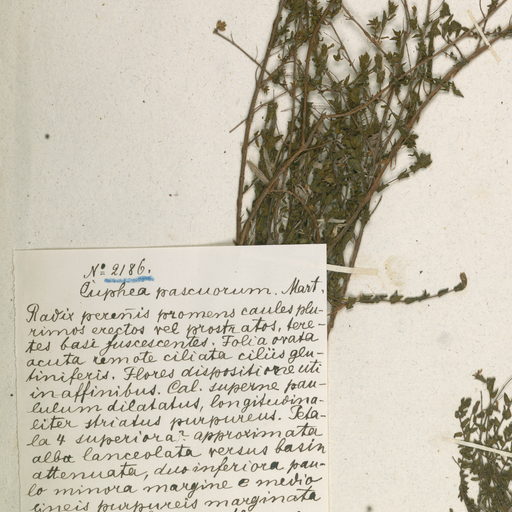 No 2186.
Cuphea pascuorum. Mart.
Radix perennis promens caules plu-
rimos erectos vel prostratos, tere-
tes basi fuscescentes. Folia ovata
acuta remote ciliata ciliis glu-
tiniferis. Flores dispositione uti
in affinibus. Cal. superne pau-
lulum dilatatus, longitudina-
liter striatus purpureus. Peta-
la 4 superiora? approximata
alba lanceolata versus basin
attenuata, duo inferiora pau-
lo minora margine e medio
lineis purpureis marginata